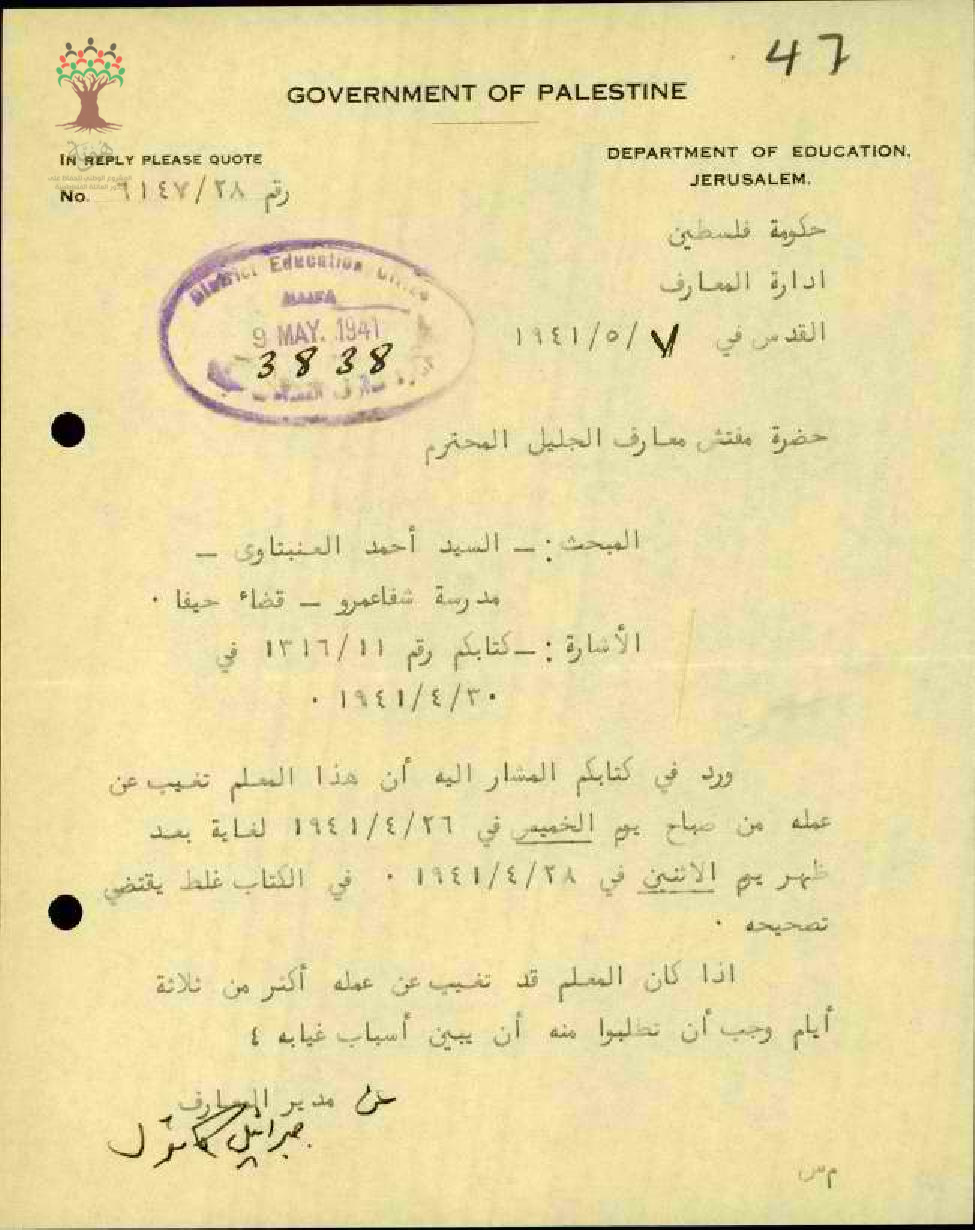 47
GOVERNMENT OF PALESTINE
IN REPLY PLEASE QUOTE
No. ٦١٤٧/٢٨ رقم
DEPARTMENT OF EDUCATION,
JERUSALEM.
حكومة فلسطين
ادارة المعارف
القدس في ٧/٥/١٩٤١
District Education Office
HAIFA
9 MAY. 1941
3838
حضرة مفتش معارف الجليل المحترم
المبحث :ـ السيد أحمد العنبتاوى ـ
مدرسة شفاعمرو ـ قضاء حيفا ٠
الأشارة :ـ كتابكم رقم ١٣١٦/١١ في
١٩٤١/٤/٣٠ ٠
ورد في كتابكم المشار اليه أن هذا المعلم تغيب عن
عمله من صباح يوم الخميس في ١٩٤١/٤/٢٦ لغاية بعد
ظهر يوم الاثنين في ١٩٤١/٤/٢٨ ٠ في الكتاب غلط يقتضي
تصحيحه ٠
اذا كان المعلم قد تغيب عن عمله أكثر من ثلاثة
أيام وجب أن تطلبوا منه أن يبين أسباب غيابه ٤
عن مدير المعارف
جبرائيل كاتول
م س